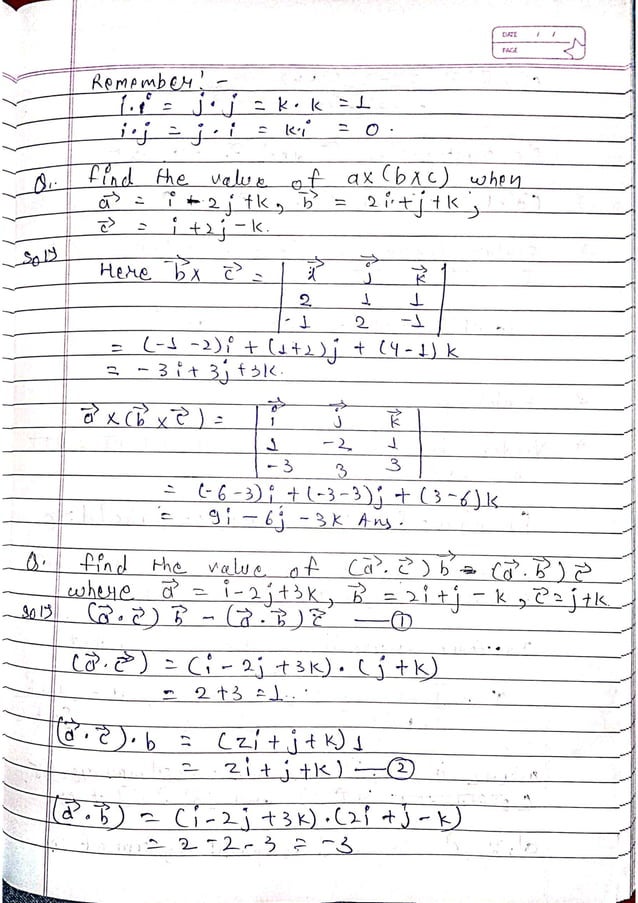 DATE / /
PAGE
Remember! -
i.i = j.j = k.k = 1
i.j = j.i = k.i = 0.
Q. find the value of ax(bxc) when
a⃗ = i - 2j + k, b⃗ = 2i + j + k,
c⃗ = i + 2j - k.
Solⁿ
Here b⃗ x c⃗ = | i⃗ j⃗ k⃗ |
2 1 1
-1 2 -1
= (-1 -2)i + (1+2)j + (4-1)k
= -3i + 3j + 3k.
a⃗ x (b⃗ x c⃗) = | i⃗ j⃗ k⃗ |
1 -2 1
-3 3 3
= (-6-3)i + (-3-3)j + (3-6)k
= 9i - 6j - 3k Ans.
Q. find the value of (a⃗.c⃗)b⃗ - (a⃗.b⃗)c⃗
where a⃗ = i-2j+3k, b⃗ = 2i+j-k, c⃗=j+k
Solⁿ (a⃗.c⃗)b⃗ - (a⃗.b⃗)c⃗ — ①
(a⃗.c⃗) = (i-2j+3k).(j+k)
= 2+3 = 1.
(a⃗.c⃗).b = (2i+j+k)1
= 2i+j+k) — ②
(a⃗.b⃗) = (i-2j+3k).(2i+j-k)
= 2-2-3 = -3